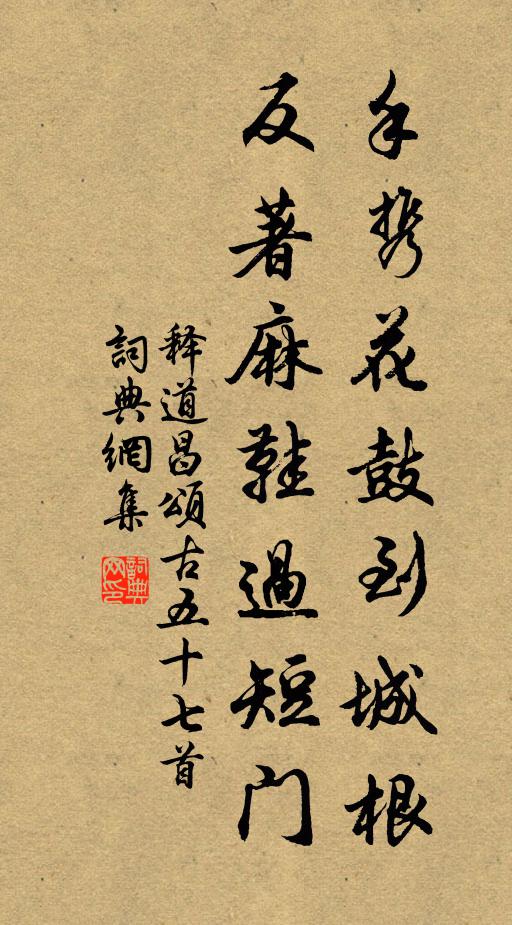 手携花鼓到城根
反著麻鞋過短門
释道昌頌古五十七首
詞典網集
詞典网印